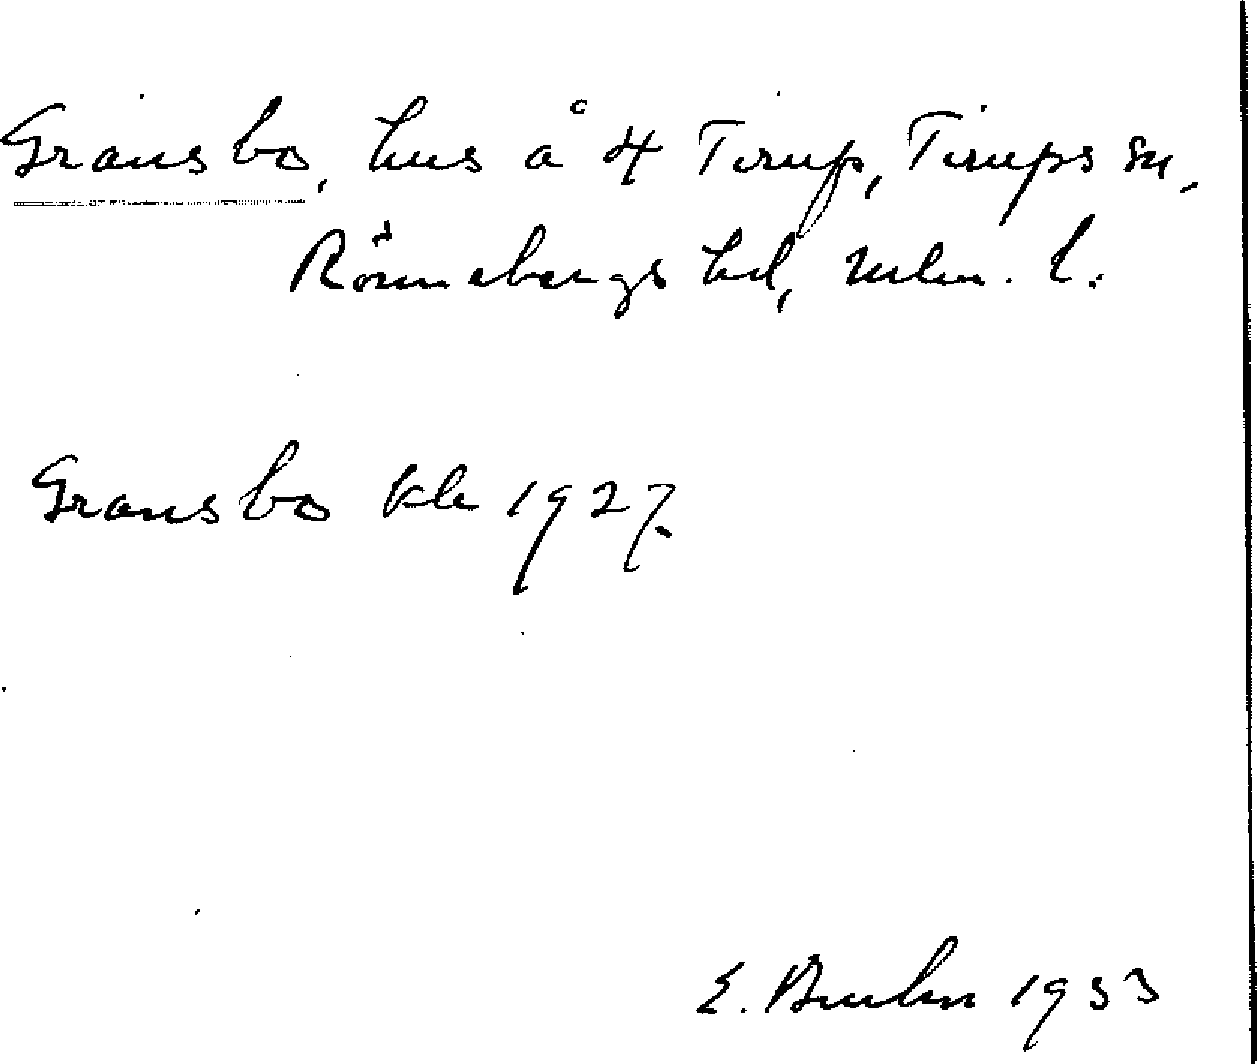 Gransbo, hus å 4 Tirup, Tirups sn,
Rönnebergs hd, Mlm. l.
Gransbo kk 1927.
E. Bruhn 1933